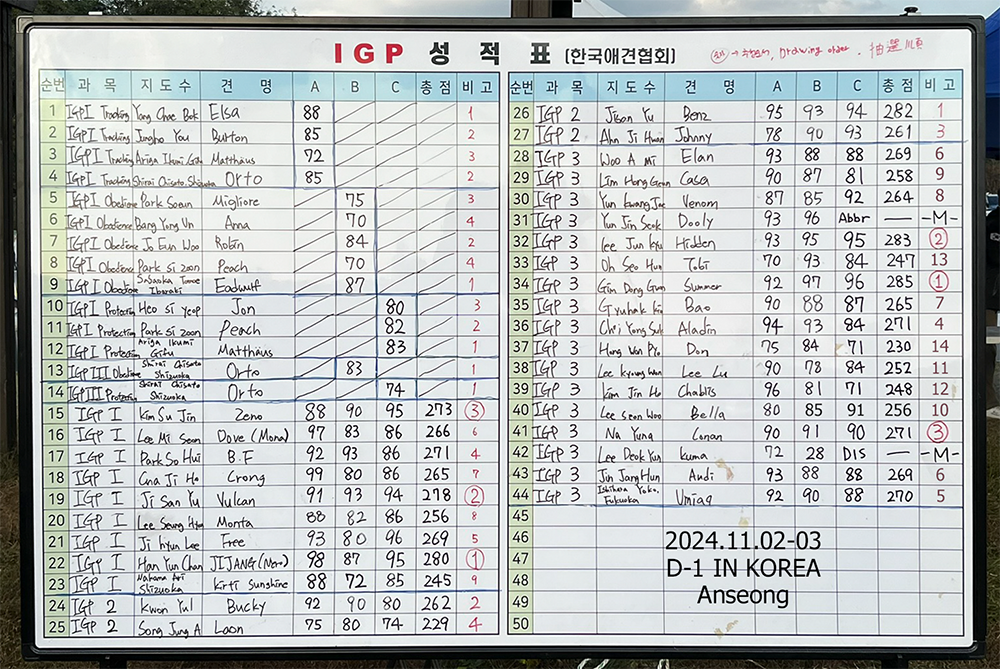 IGP 성적표 (한국애견협회)
Drawing order. 抽選順
순번 과목 지도수 견명 A B C 총점 비고
1 IGPI Tracking Yang Chae Bok Elsa 88 1
2 IGPI Tracking Jungho You Burton 85 2
3 IGPI Tracking Ariga Ikumi Matthäus 72 3
4 IGPI Tracking Shirai Chisato. Shizuoka Orto 85 2
5 IGPI Obedience Park Soeun Migliore 75 3
6 IGPI Obedience Bang Yong Un Anna 70 4
7 IGPI Obedience Jo Eun Woo Robin 84 2
8 IGPI Obedience Park si zoon Peach 70 4
9 IGPI Obedience Ibaraki Eadwulf 87 1
10 IGPI Protection Heo si yeop Jon 80 3
11 IGPI Protection Park si zoon Peach 82 2
12 IGPI Protection Ariga Ikumi Gifu Matthäus 83 1
13 IGPIII Obedience Shirai Chisato Shizuoka Orto 83 1
14 IGPIII Protection Shirai Chisato Shizuoka Orto 74 1
15 IGP I Kim Su Jin Zeno 88 90 95 273 3
16 IGP I Lee Mi Seon Dove (Mona) 97 83 86 266 6
17 IGP I Park So Hui B.F 92 93 86 271 4
18 IGP I Gna Ji Ho Crong 99 80 86 265 7
19 IGP I Ji San Yu Vulcan 91 93 94 278 2
20 IGP I Lee Seung Hyun Monta 88 82 86 256 8
21 IGP I Ji hyun Lee Free 93 80 96 269 5
22 IGP I Han Yun Chan JIJANG (Nero) 98 87 95 280 1
23 IGP I Shizuoka Kirti Sunshine 88 72 85 245 9
24 IGP 2 Kwon Yul Bucky 92 90 80 262 2
25 IGP 2 Song Jung A Laon 75 80 74 229 4
순번 과목 지도수 견명 A B C 총점 비고
26 IGP 2 Jisan Yu Benz 95 93 94 282 1
27 IGP 2 Ahn Ji Hwan Johnny 78 90 93 261 3
28 IGP 3 Woo A mi Elan 93 88 88 269 6
29 IGP 3 Lim Hong Geun Casa 90 87 81 258 9
30 IGP 3 Yun Kwang Jae Venom 87 85 92 264 8
31 IGP 3 Yun Jin Seok Dooly 93 96 Abbr — -M-
32 IGP 3 Lee Jun kyu Hidden 93 95 95 283 2
33 IGP 3 Oh Seo Hun Tobi 70 93 84 247 13
34 IGP 3 Gim Dong Gun Summer 92 97 96 285 1
35 IGP 3 Gyuhak kim Bao 90 88 87 265 7
36 IGP 3 Choi Yong Suk Aladin 94 93 84 271 4
37 IGP 3 Hong Won Pyo Don 75 84 71 230 14
38 IGP 3 Lee kyoung Won Lee Lu 90 78 84 252 11
39 IGP 3 kim Jin Ho Chablis 96 81 71 248 12
40 IGP 3 Lee seon Woo Bella 80 85 91 256 10
41 IGP 3 Na Yung Conan 90 91 90 271 3
42 IGP 3 Lee Deok Yun kuma 72 28 DIS — -M-
43 IGP 3 Jin Jang Hun Andi 93 88 88 269 6
44 IGP 3 Ishihara Yoko. Fukuoka Umiaq 92 90 88 270 5
45
46
47
48
49
50
2024.11.02-03
D-1 IN KOREA
Anseong